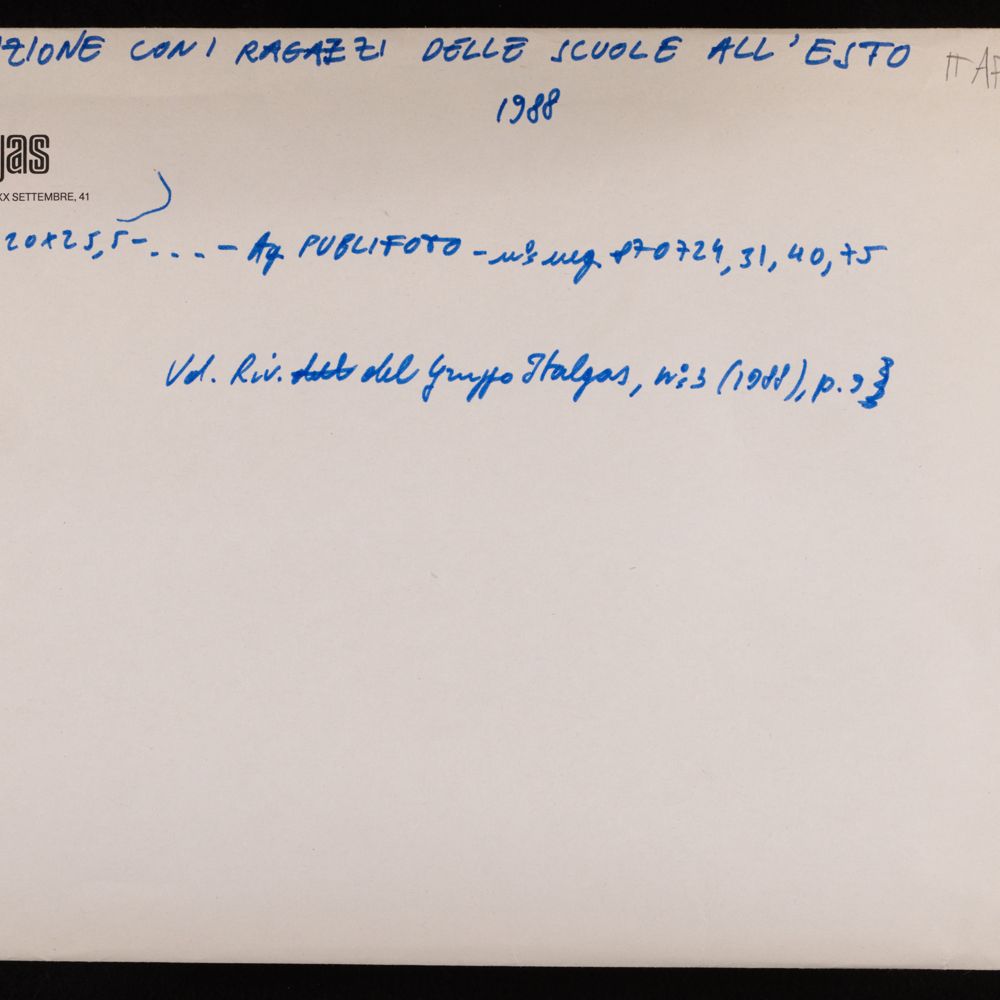 ZIONE CON I RAGAZZI DELLE SCUOLE ALL'ESTO
1988
gas
XX SETTEMBRE, 41
20x25,5-....- Ag. PUBLIFOTO - n°s neg. 870724, 31, 40, 75
Vd. Riv. del Gruppo Italgas, n°3 (1988), p. 9}